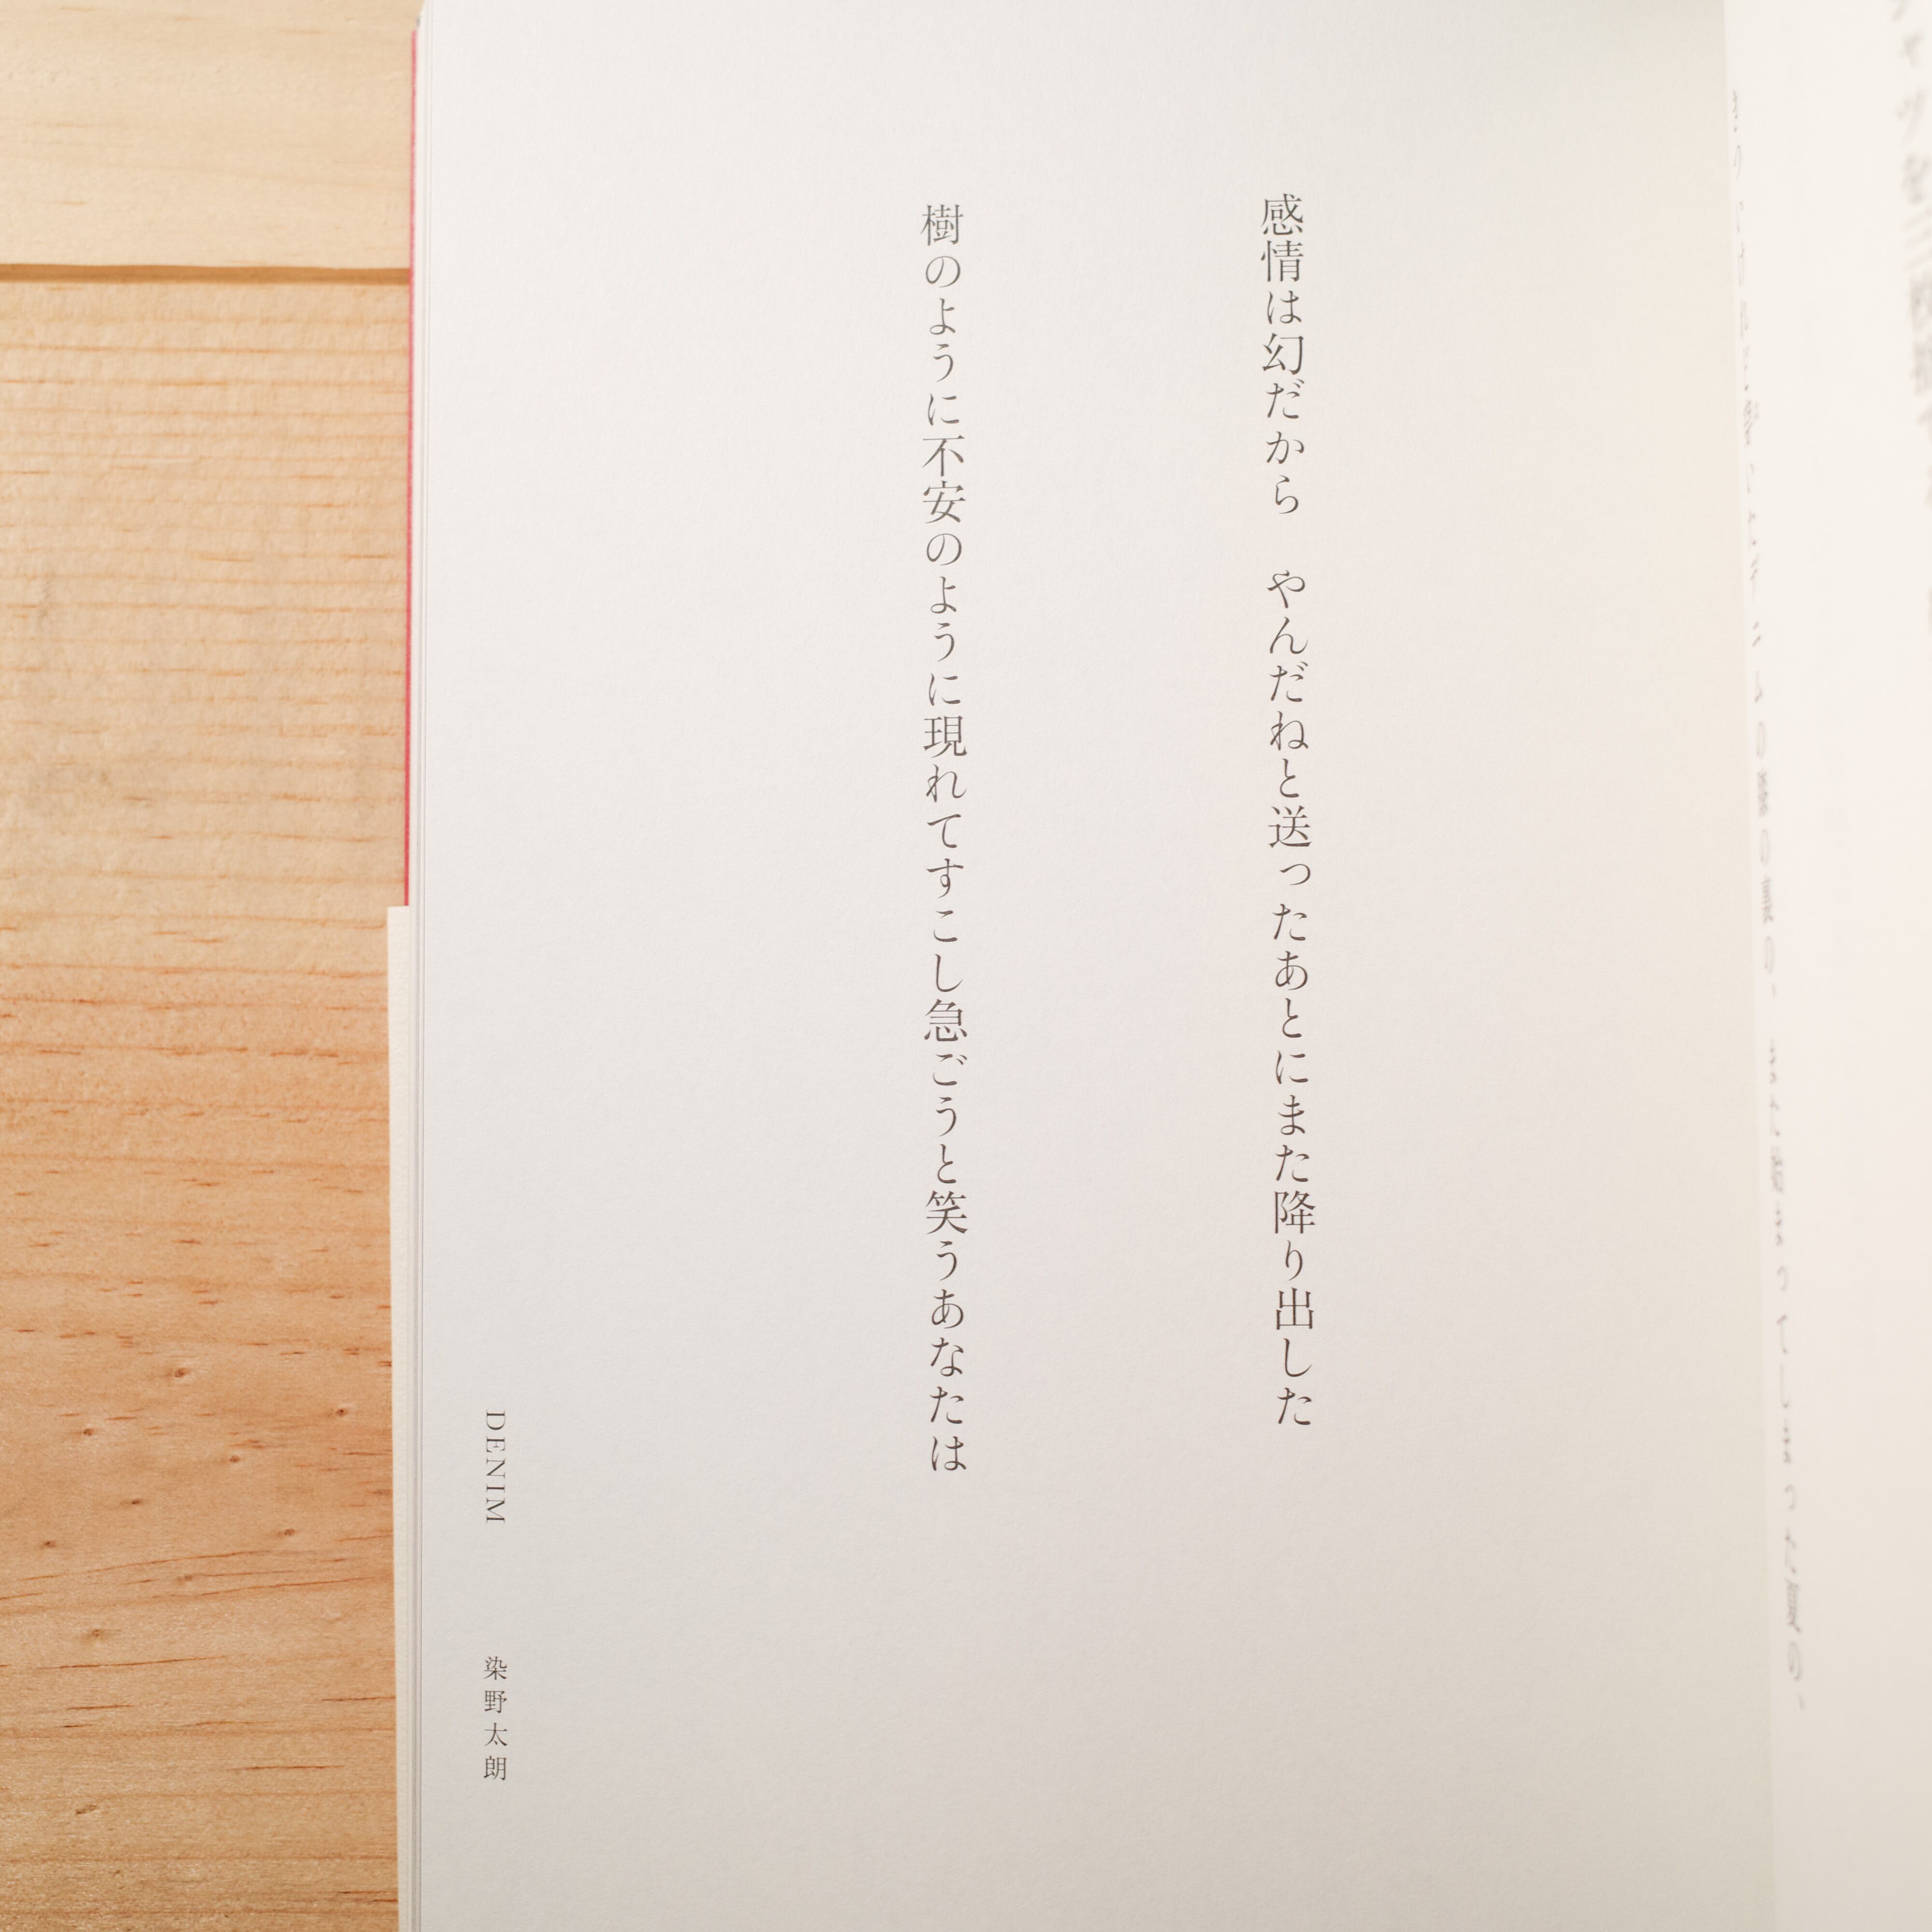 感情は幻だから　やんだねと送ったあとにまた降り出した
樹のように不安のように現れてすこし急ごうと笑うあなたは
DENIM　染野太朗